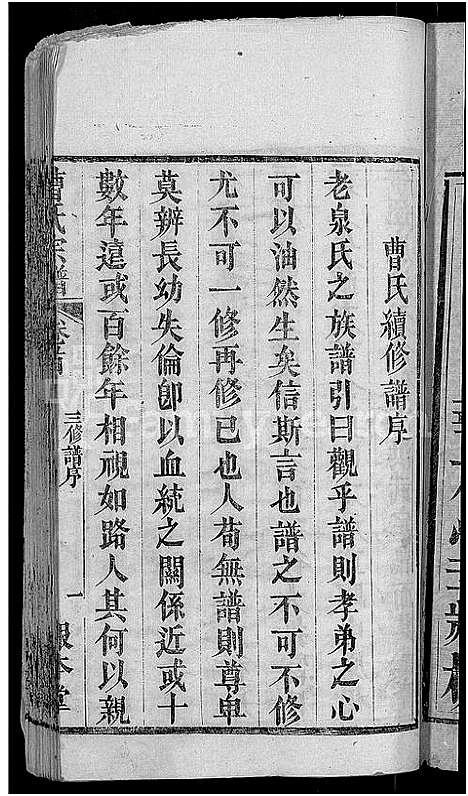 曹氏續修譜序
老泉氏之族譜引曰觀乎譜則孝弟之心
可以油然生矣信斯言也譜之不可不修
尤不可一修再修已也人苟無譜則尊卑
莫辨長幼失倫卽以血統之關係近或十
數年遠或百餘年相視如路人其何以親
曹氏宗譜
卷首
三修譜序
一